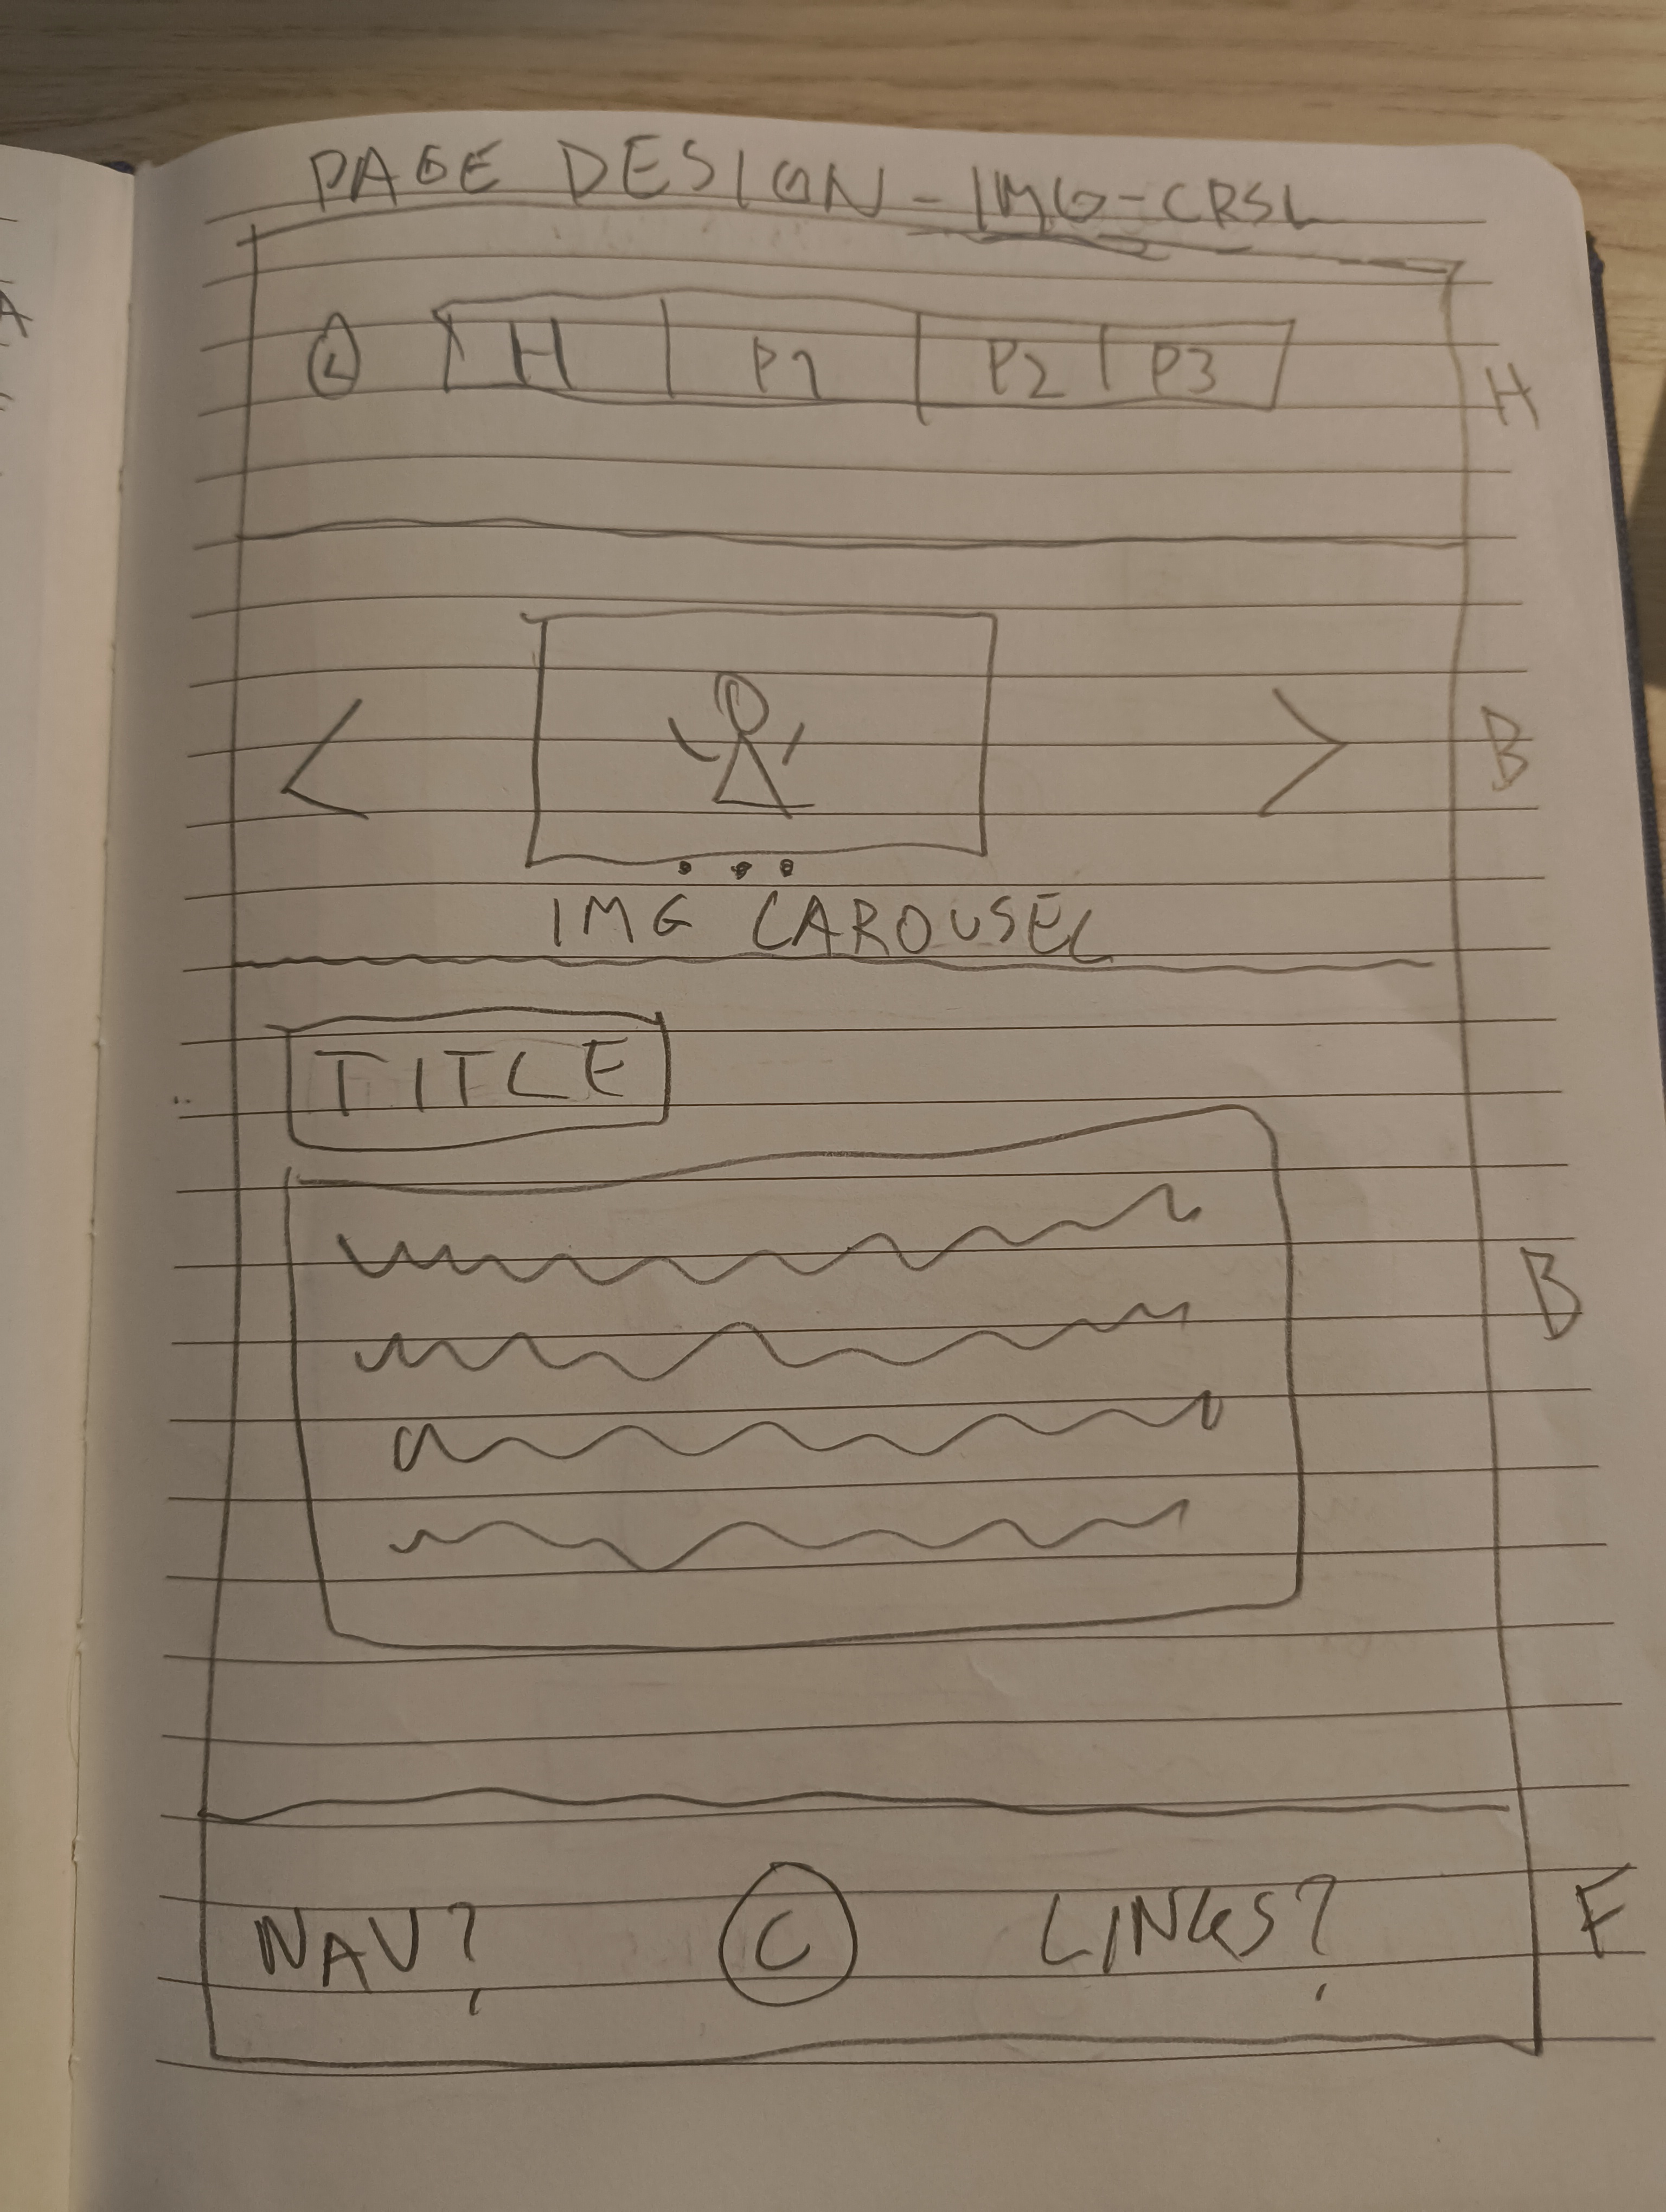 PAGE DESIGN - IMG-CRSL
L H P1 P2 P3 H
B
IMG CAROUSEL
TITLE
B
NAV? C LINKS? F
A